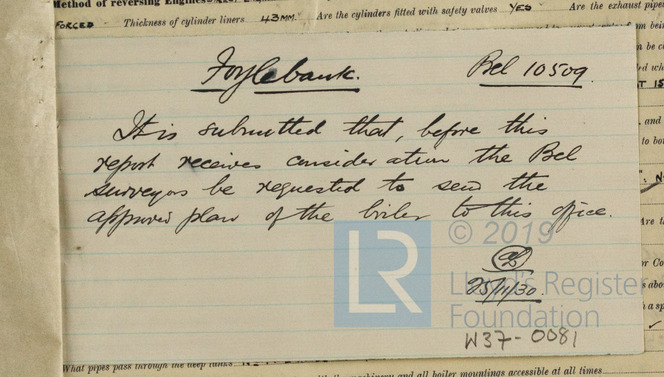 Method of reversing Engines
FORCED Thickness of cylinder liners 43MM. Are the cylinders fitted with safety valves YES Are the exhaust pipe
Foylebank. Bel 10509.
It is submitted that, before this
report receives consideration the Bel
surveyors be requested to send the
approved plan of the boiler to this office.
25/11/30.
W37-0081
© 2019
LR Lloyd's Register
Foundation
What pipes pass through the deep tanks
machinery and all boiler mountings accessible at all times